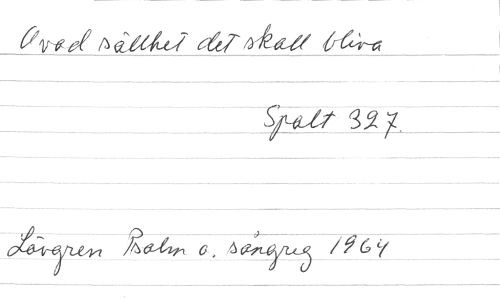 O vad sällhet det skall bliva
Spalt 327.
Lövgren Psalm o. sångreg 1964